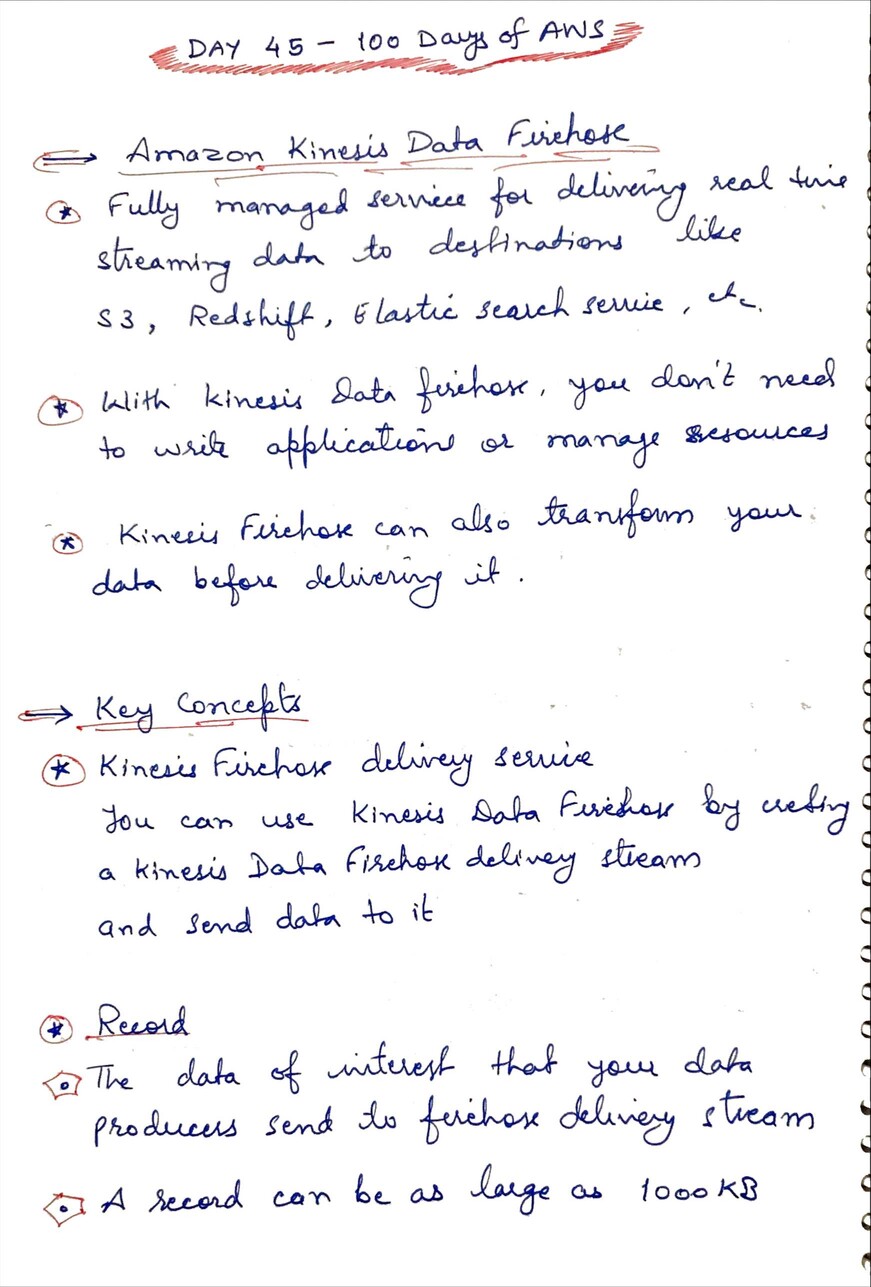 DAY 45 - 100 Days of AWS
⇒ Amazon Kinesis Data Firehose
* Fully managed service for delivering real time
streaming data to destinations like
S3, Redshift, Elastic search service, etc.
* With kinesis Data firehose, you don't need
to write applications or manage resources
* Kinesis Firehose can also transform your
data before delivering it.
⇒ Key Concepts
* Kinesis Firehose delivery service
You can use Kinesis Data Firehose by creating
a kinesis Data Firehose delivery stream
and send data to it
* Record
The data of interest that your data
producers send to firehose delivery stream
A record can be as large as 1000 KB